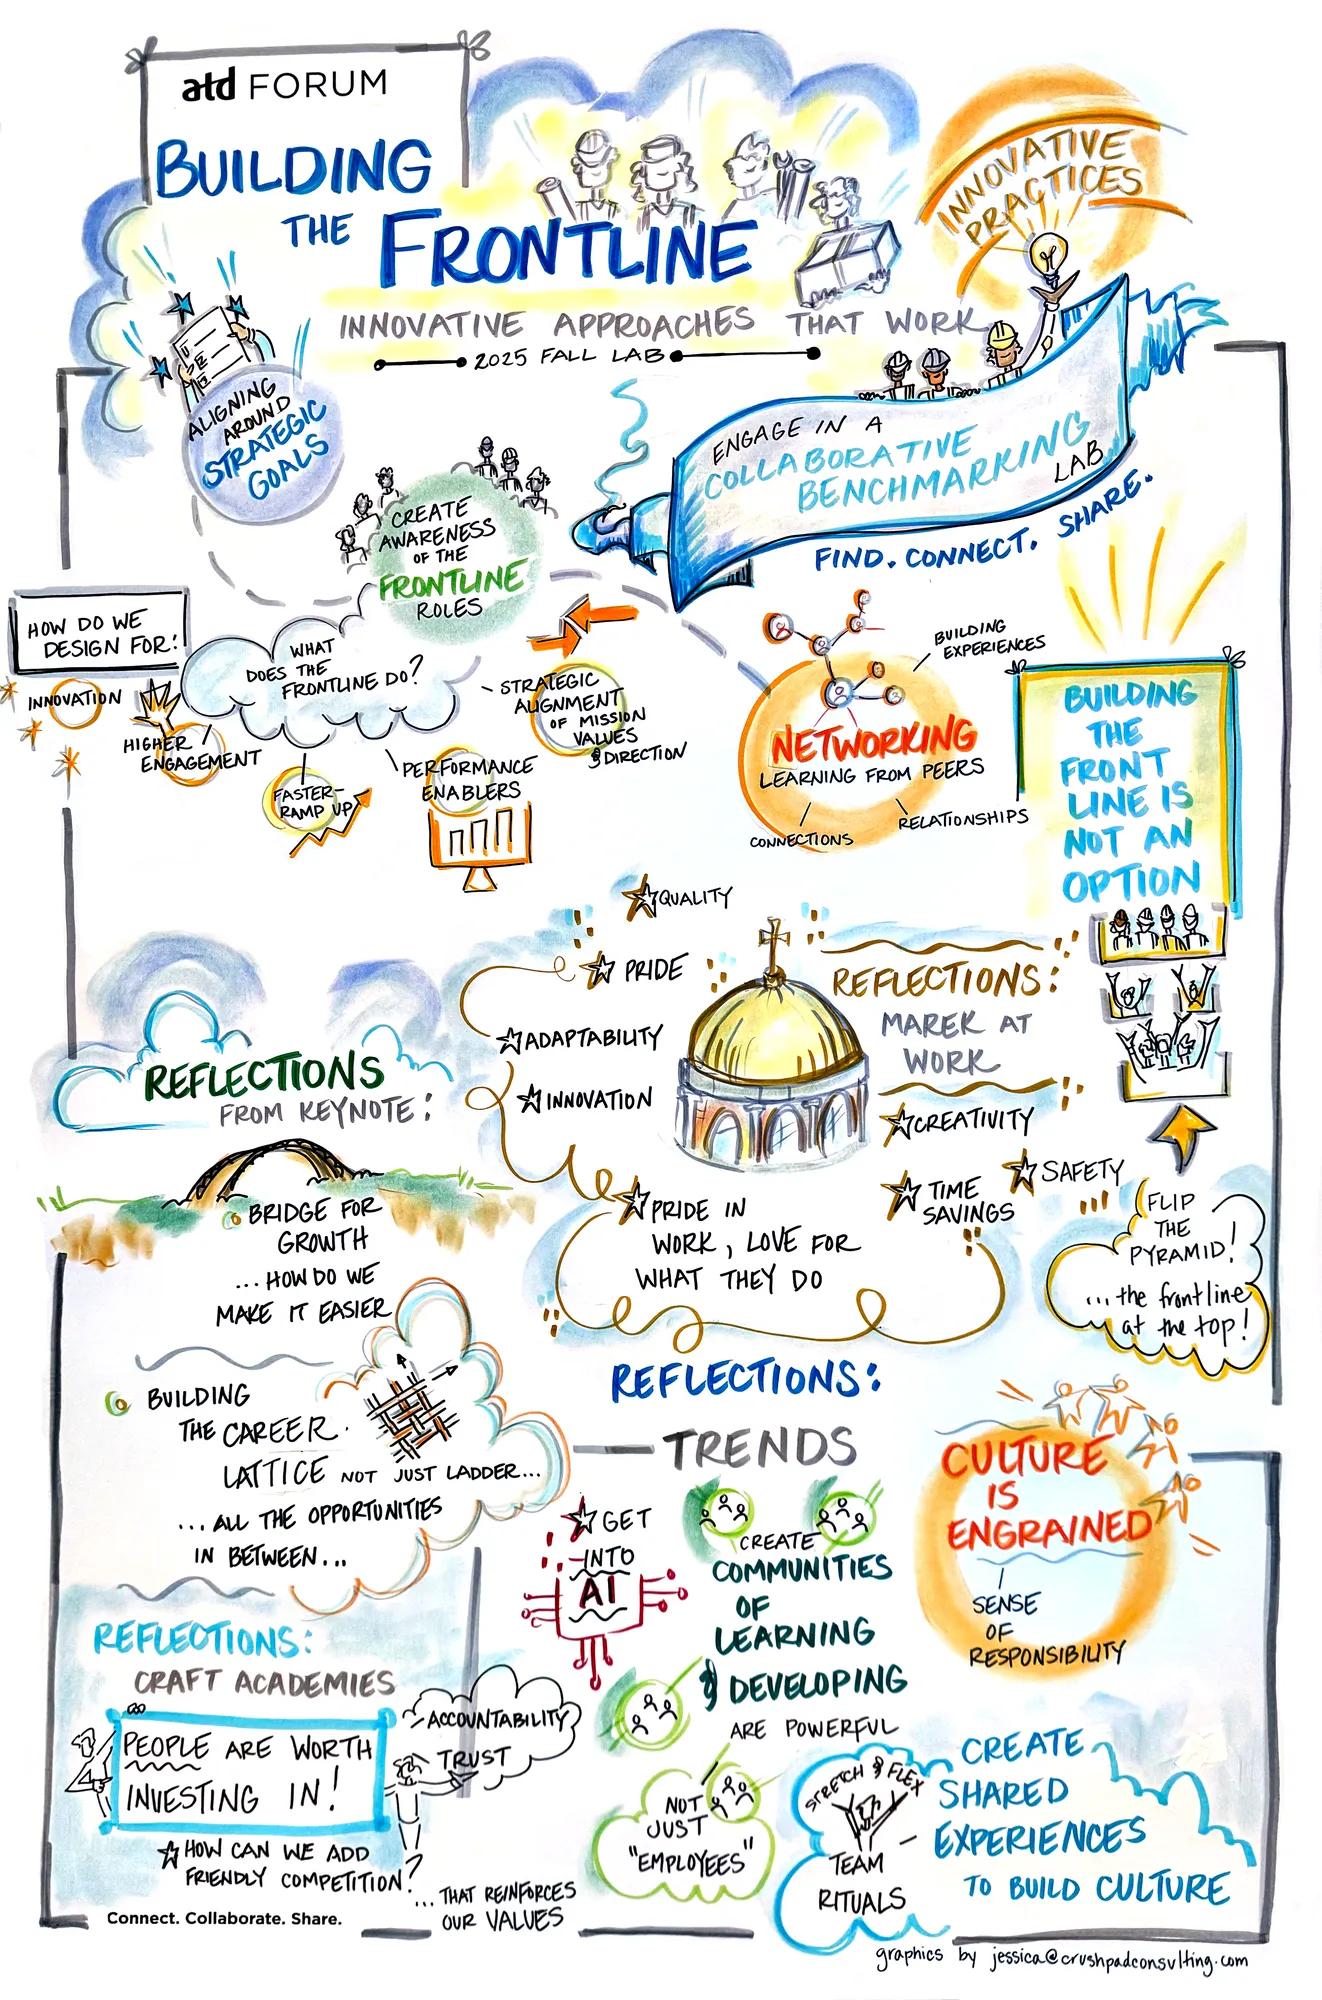 atd FORUM
BUILDING
THE FRONTLINE
INNOVATIVE APPROACHES THAT WORK
2025 FALL LAB
INNOVATIVE
PRACTICES
ALIGNING
AROUND
STRATEGIC
GOALS
ENGAGE IN A
COLLABORATIVE
BENCHMARKING
LAB
FIND. CONNECT. SHARE.
CREATE
AWARENESS
OF THE
FRONTLINE
ROLES
HOW DO WE
DESIGN FOR:
INNOVATION
HIGHER
ENGAGEMENT
WHAT
DOES THE
FRONTLINE DO?
FASTER-
RAMP UP
PERFORMANCE
ENABLERS
STRATEGIC
ALIGNMENT
OF MISSION
VALUES
& DIRECTION
BUILDING
EXPERIENCES
NETWORKING
LEARNING FROM PEERS
CONNECTIONS
RELATIONSHIPS
BUILDING
THE
FRONT
LINE IS
NOT AN
OPTION
QUALITY
PRIDE
ADAPTABILITY
INNOVATION
PRIDE IN
WORK, LOVE FOR
WHAT THEY DO
REFLECTIONS:
MAREK AT
WORK
CREATIVITY
SAFETY
TIME
SAVINGS
FLIP
THE
PYRAMID!
...the frontline
at the top!
REFLECTIONS
FROM KEYNOTE:
BRIDGE FOR
GROWTH
...HOW DO WE
MAKE IT EASIER
BUILDING
THE CAREER
LATTICE NOT JUST LADDER...
...ALL THE OPPORTUNITIES
IN BETWEEN...
REFLECTIONS:
TRENDS
GET
INTO
AI
CREATE
COMMUNITIES
OF
LEARNING
& DEVELOPING
ARE POWERFUL
NOT
JUST
"EMPLOYEES"
CULTURE
IS
ENGRAINED
SENSE
OF
RESPONSIBILITY
REFLECTIONS:
CRAFT ACADEMIES
PEOPLE ARE WORTH
INVESTING IN!
ACCOUNTABILITY
TRUST
HOW CAN WE ADD
FRIENDLY COMPETITION?
...THAT REINFORCES
OUR VALUES
STRETCH & FLEX
TEAM
RITUALS
CREATE
SHARED
EXPERIENCES
TO BUILD CULTURE
Connect. Collaborate. Share.
graphics by jessica@crushpadconsulting.com